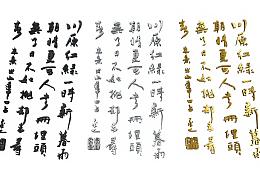 川原紅綠一時新暮雨
朝晴更可人書冊埋頭
無了日不如抛却去尋
春
川原紅綠一時新暮雨
朝晴更可人書冊埋頭
無了日不如抛却去尋
春
川原紅綠一時新暮雨
朝晴更可人書冊埋頭
無了日不如抛却去尋
春